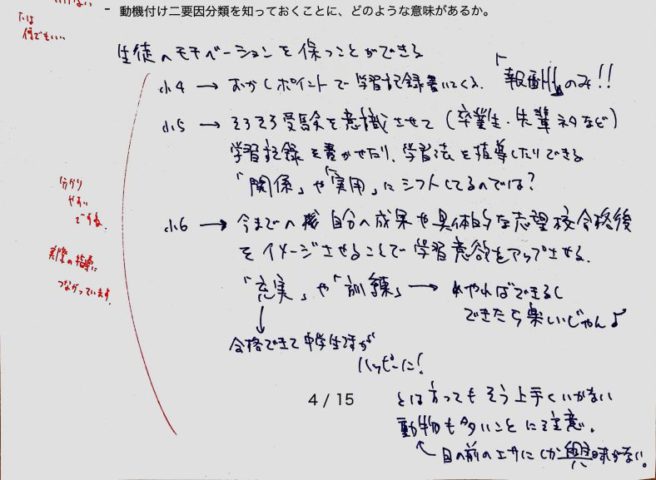 - 動機付け二要因分類を知っておくことに、どのような意味があるか。
何でもいい
生徒のモチベーションを保つことができる
小4 → おかしポイントで学習記録書いてくる。「報酬」のみ!!
小5 → そろそろ受験を意識させて(卒業生・先輩ネタなど)
学習記録を書かせたり、学習法を指導したりできる
「関係」や「実用」にシフトしてるのでは?
分かり
やすい
ですね。
小6 → 今までの 自分の成果や具体的な志望校合格後
をイメージさせることで学習意欲をアップさせる。
実際の指導に
つながっています。
「充実」や「訓練」→ やればできるし
できたら楽しいじゃん♪
合格できて中学生活が
ハッピーに!
4 / 15
とは言ってもそう上手くいかない
動物も多いことに注意。
目の前のエサにしか興味がない。